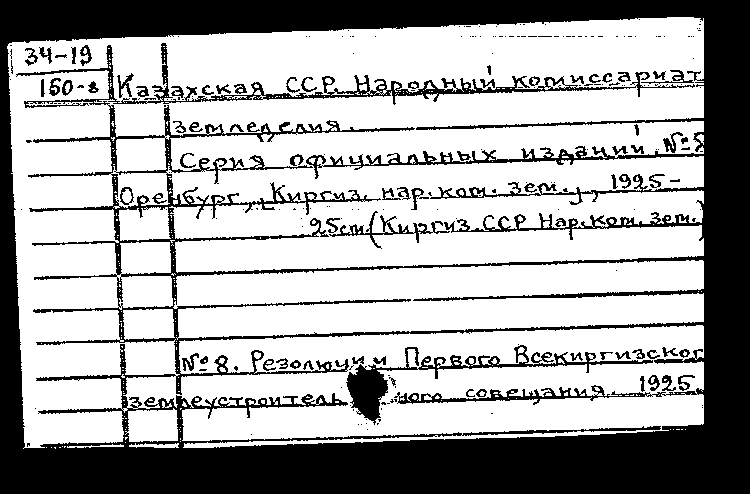 34-19
150-8 Казахская ССР. Народный комиссариат
земледелия.
Серия официальных изданий. №8
Оренбург, [Киргиз. нар. ком. зем.], 1925-
25см. (Киргиз. ССР Нар. ком. зем.)
№ 8. Резолюции Первого Всекиргизског
землеустроительного совещания. 1925.